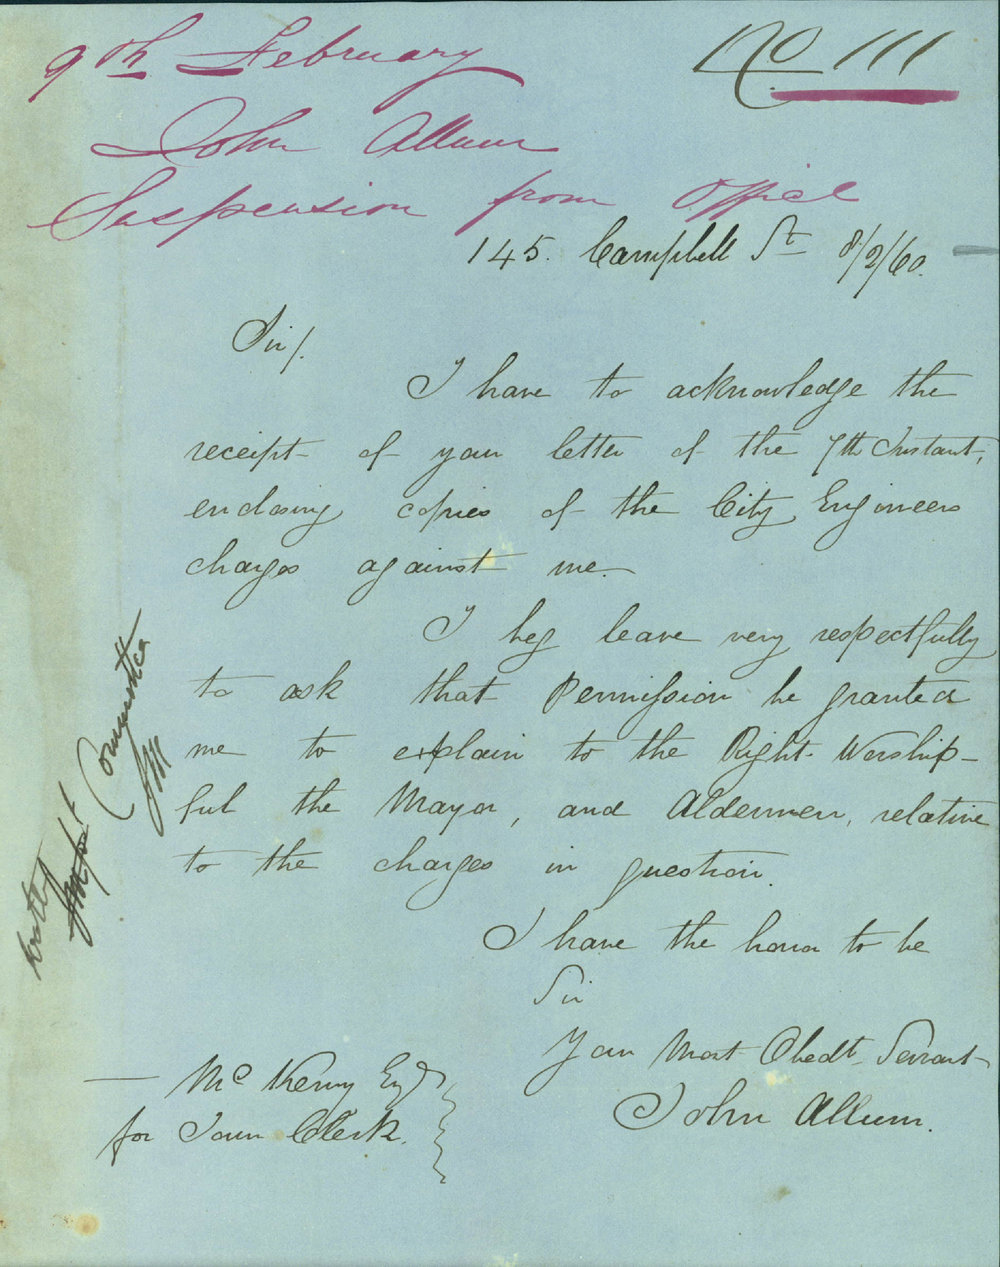 9th February
No 111
John Allum
Suspension from Office
145. Campbell St 8/2/60.
Sir/.
I have to acknowledge the
receipt of your letter of the 7th Instant,
enclosing copies of the City Engineers
charges against me.
I beg leave very respectfully
to ask that Permission be granted
me to explain to the Right Worship-
ful the Mayor, and Aldermen, relative
to the charges in question.
I have the honor to be
Sir
Your Most Obedt Servant
John Allum.
— Mc Kenny Esqr
for Town Clerk.
Committee